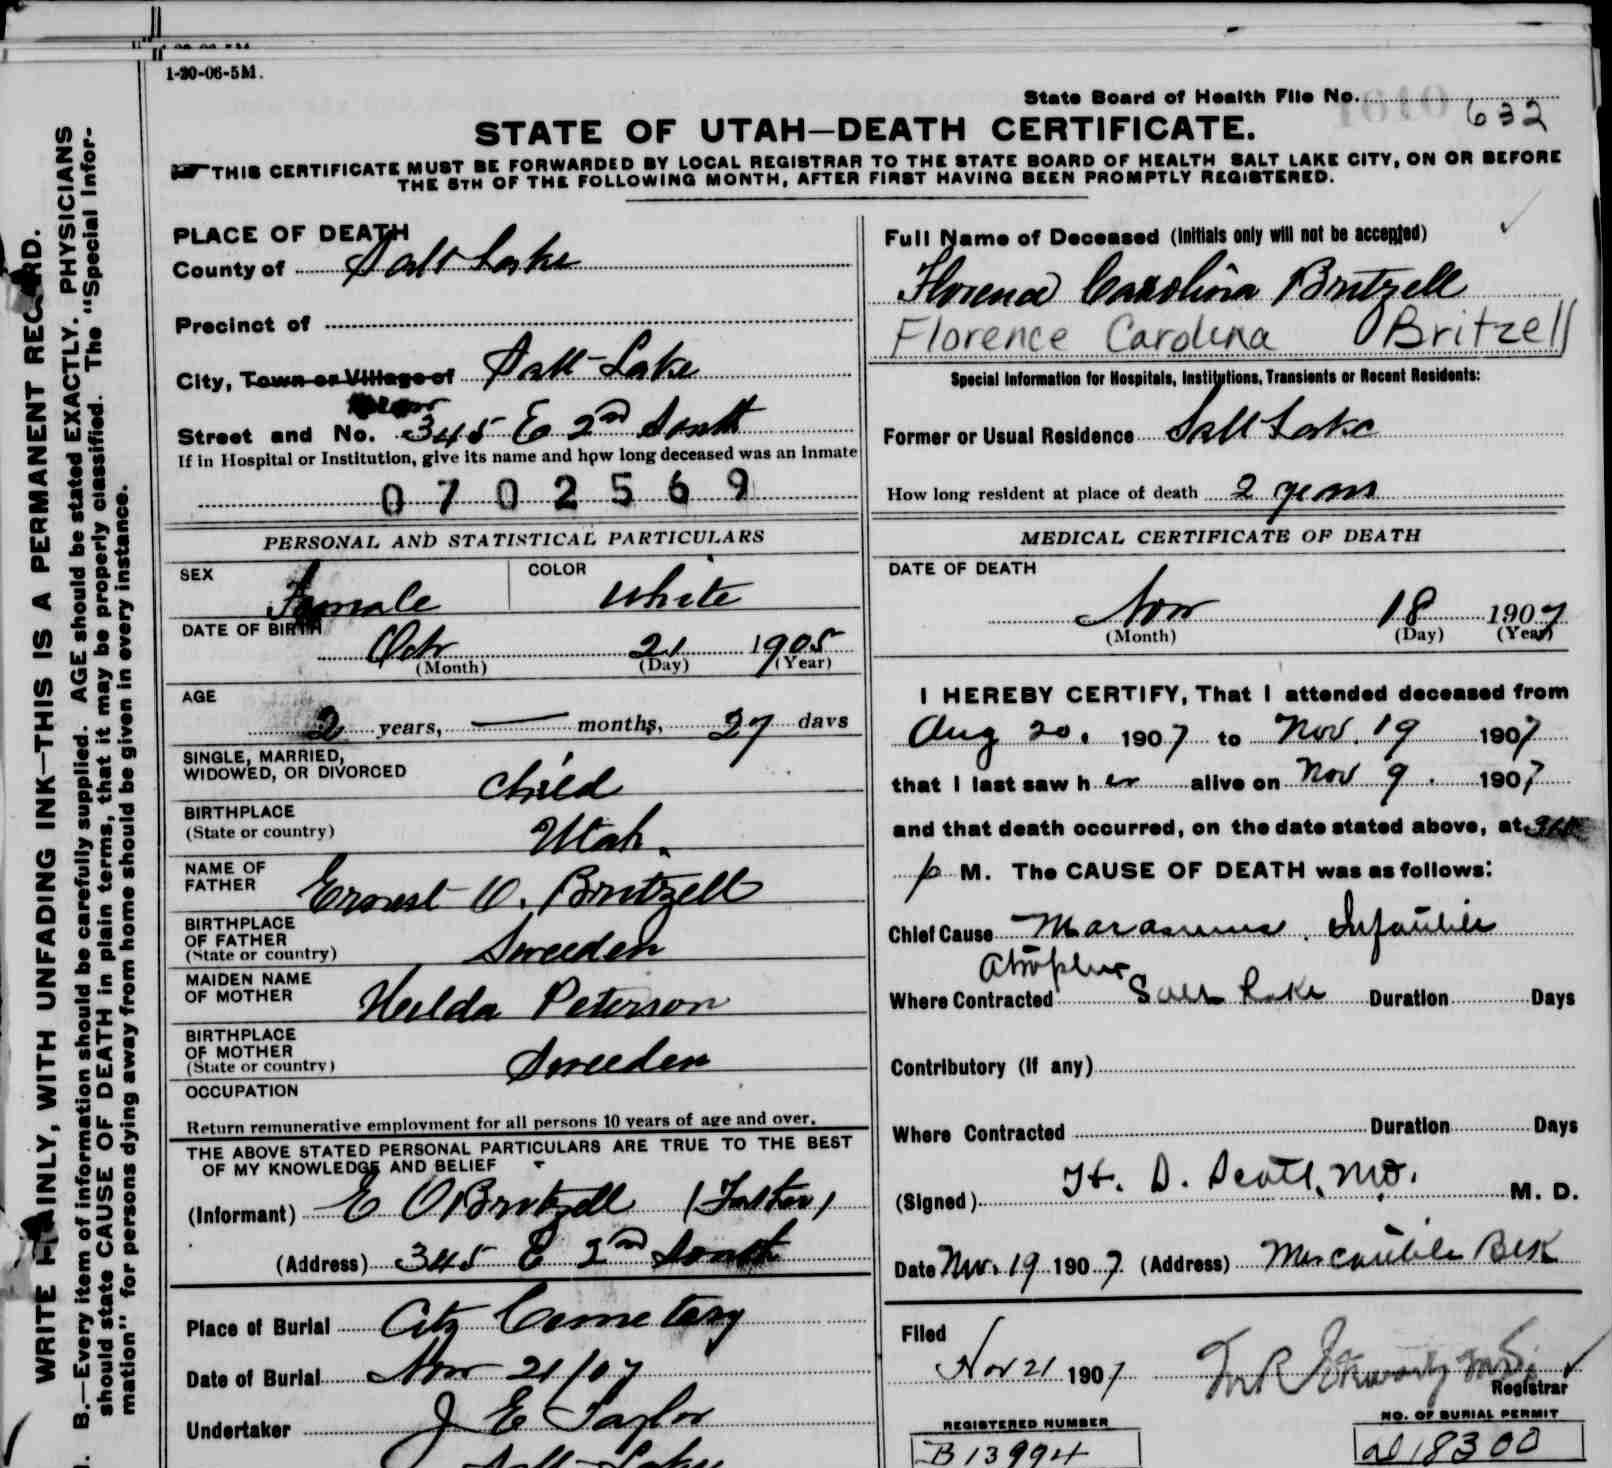 1-20-06-5M.
State Board of Health File No. 632
STATE OF UTAH—DEATH CERTIFICATE.
THIS CERTIFICATE MUST BE FORWARDED BY LOCAL REGISTRAR TO THE STATE BOARD OF HEALTH SALT LAKE CITY, ON OR BEFORE
THE 5TH OF THE FOLLOWING MONTH, AFTER FIRST HAVING BEEN PROMPTLY REGISTERED.
WRITE PLAINLY, WITH UNFADING INK—THIS IS A PERMANENT RECORD.
B.—Every item of information should be carefully supplied. AGE should be stated EXACTLY. PHYSICIANS
should state CAUSE OF DEATH in plain terms, that it may be properly classified. The "Special Infor-
mation" for persons dying away from home should be given in every instance.
PLACE OF DEATH
County of Salt Lake
Precinct of
City, Town or Village of Salt-Lake
Street and No. 345 E 2nd South
If in Hospital or Institution, give its name and how long deceased was an inmate
0702569
PERSONAL AND STATISTICAL PARTICULARS
SEX Female COLOR White
DATE OF BIRTH
Oct 21 1905
(Month) (Day) (Year)
AGE
2 years, — months, 27 days
SINGLE, MARRIED,
WIDOWED, OR DIVORCED child
BIRTHPLACE
(State or country) Utah.
NAME OF
FATHER Ernest O. Britzell
BIRTHPLACE
OF FATHER
(State or country) Sweeden
MAIDEN NAME
OF MOTHER Hulda Peterson
BIRTHPLACE
OF MOTHER
(State or country) Sweeden
OCCUPATION
Return remunerative employment for all persons 10 years of age and over.
THE ABOVE STATED PERSONAL PARTICULARS ARE TRUE TO THE BEST
OF MY KNOWLEDGE AND BELIEF
(Informant) E O Britzell (Father)
(Address) 345 E 2nd South
Place of Burial City Cemetery
Date of Burial Nov 21/07
Undertaker J E Taylor
Salt-Lake
Full Name of Deceased (Initials only will not be accepted)
Florence Carolina Britzell
Florence Carolina Britzell
Special Information for Hospitals, Institutions, Transients or Recent Residents:
Former or Usual Residence Salt Lake
How long resident at place of death 2 years
MEDICAL CERTIFICATE OF DEATH
DATE OF DEATH
Nov 18 1907
(Month) (Day) (Year)
I HEREBY CERTIFY, That I attended deceased from
Aug 20. 1907 to Nov. 19 1907
that I last saw her alive on Nov 9. 1907
and that death occurred, on the date stated above, at
p M. The CAUSE OF DEATH was as follows:
Chief Cause Marasmus. Infantile
Atrophy
Where Contracted Salt Lake Duration Days
Contributory (if any)
Where Contracted Duration Days
(Signed) H. D. Scott, M.D. M. D.
Date Nov. 19 1907. (Address) Mercantile Blk
Filed
Nov 21 1907
Registrar
REGISTERED NUMBER
B13994
NO. OF BURIAL PERMIT
18300